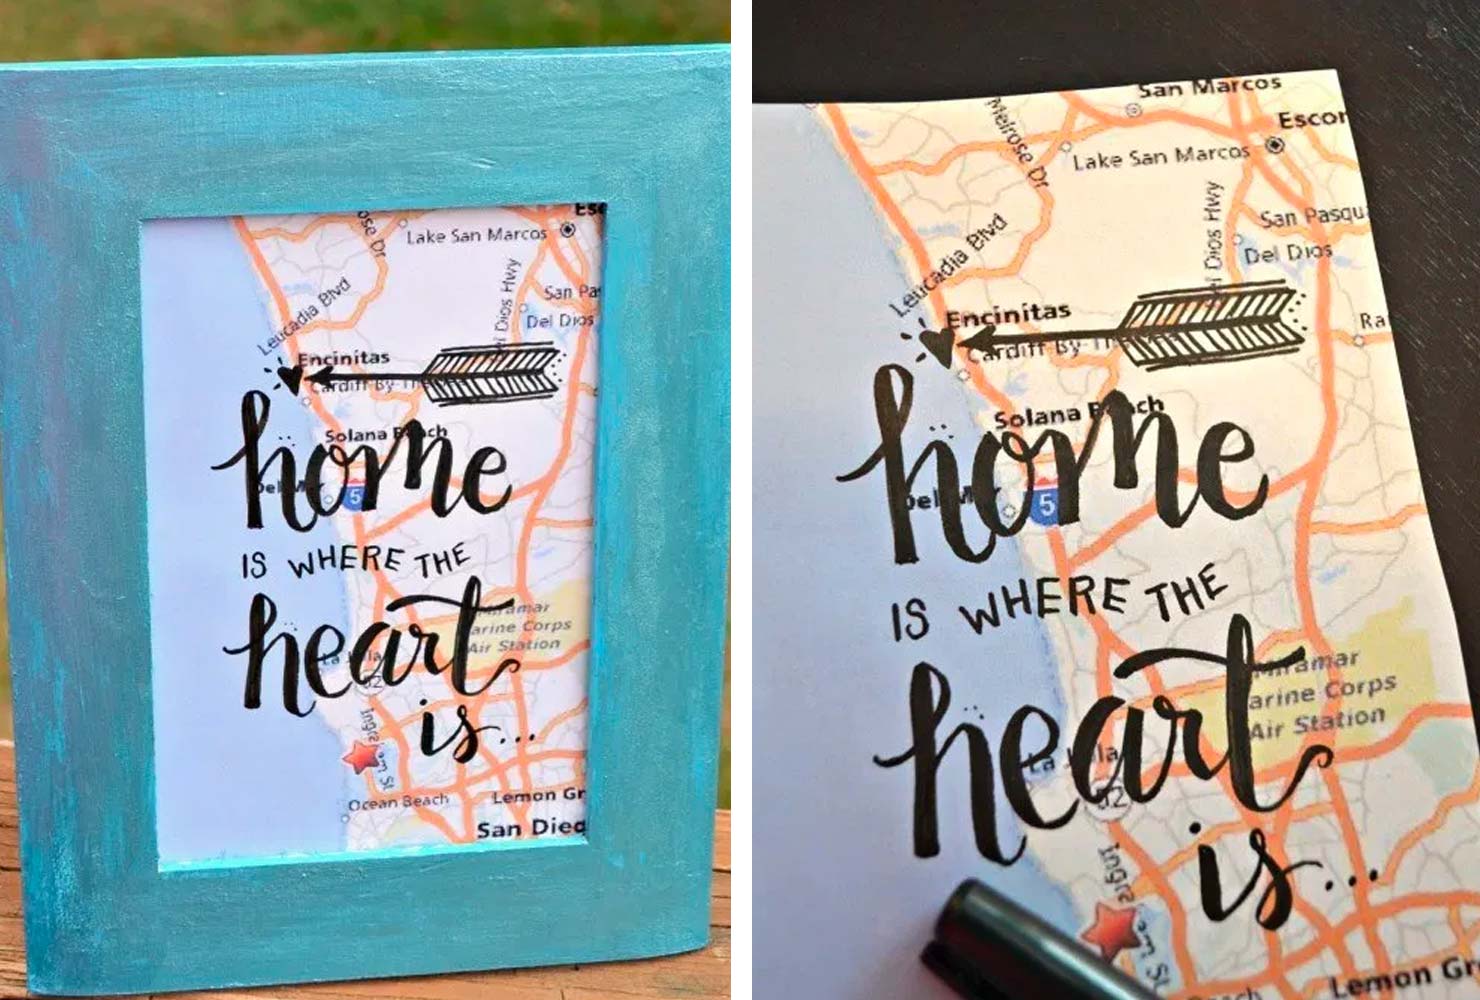 Esc
Lake San Marcos
ose Dr
Leucadia Blvd
Dios Hwy
San Pa
Del Dios
Encinitas
Cardiff By
Solana B ch
home
Del M
5
IS WHERE THE
heart
Miramar
arine Corps
Air Station
La
is...
Ocean Beach
Lemon Gr
San Dieg
San Marcos
Escon
Melrose Dr
Lake San Marcos
San Pasqu
Del Dios
Dios Hwy
Leucadia Blvd
Encinitas
Ra
Cardiff By
Solana B ch
home
Del M
5
IS WHERE THE
heart
Miramar
arine Corps
Air Station
La lla
is...
Ingra
St
Beach
Lemon Gr